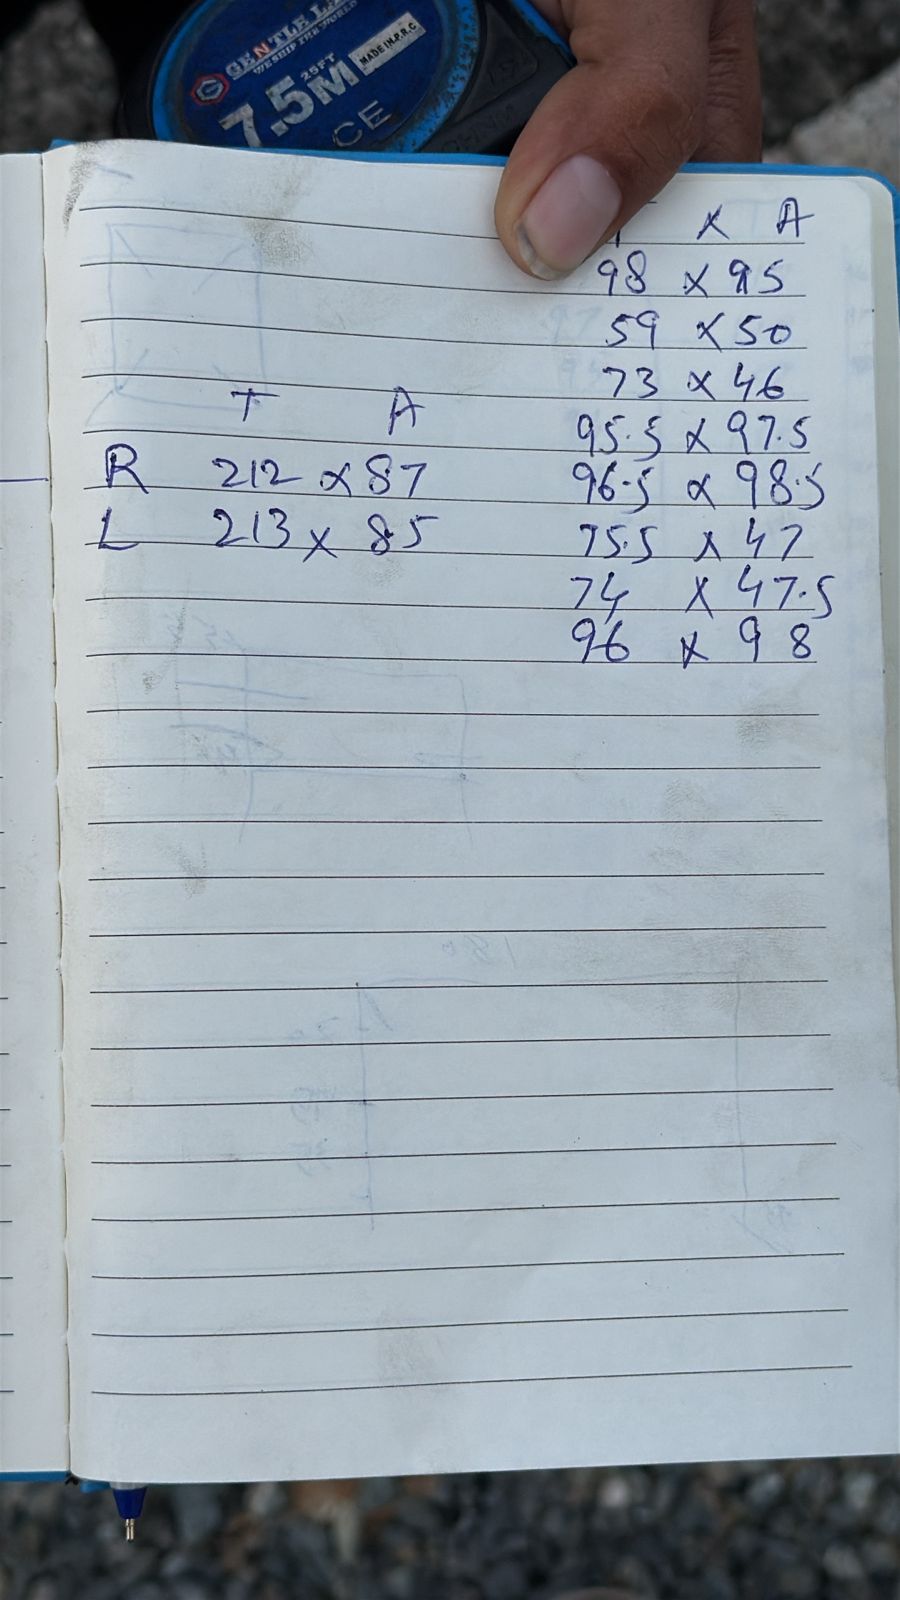 GENTLE
WE SHIP THE WORLD
25FT
7.5M
MADE IN P.R.C
CE
T × A
98 × 95
59 × 50
73 × 46
95.5 × 97.5
96.5 × 98.5
75.5 × 47
74 × 47.5
96 × 98
T A
R 212 × 87
L 213 × 85